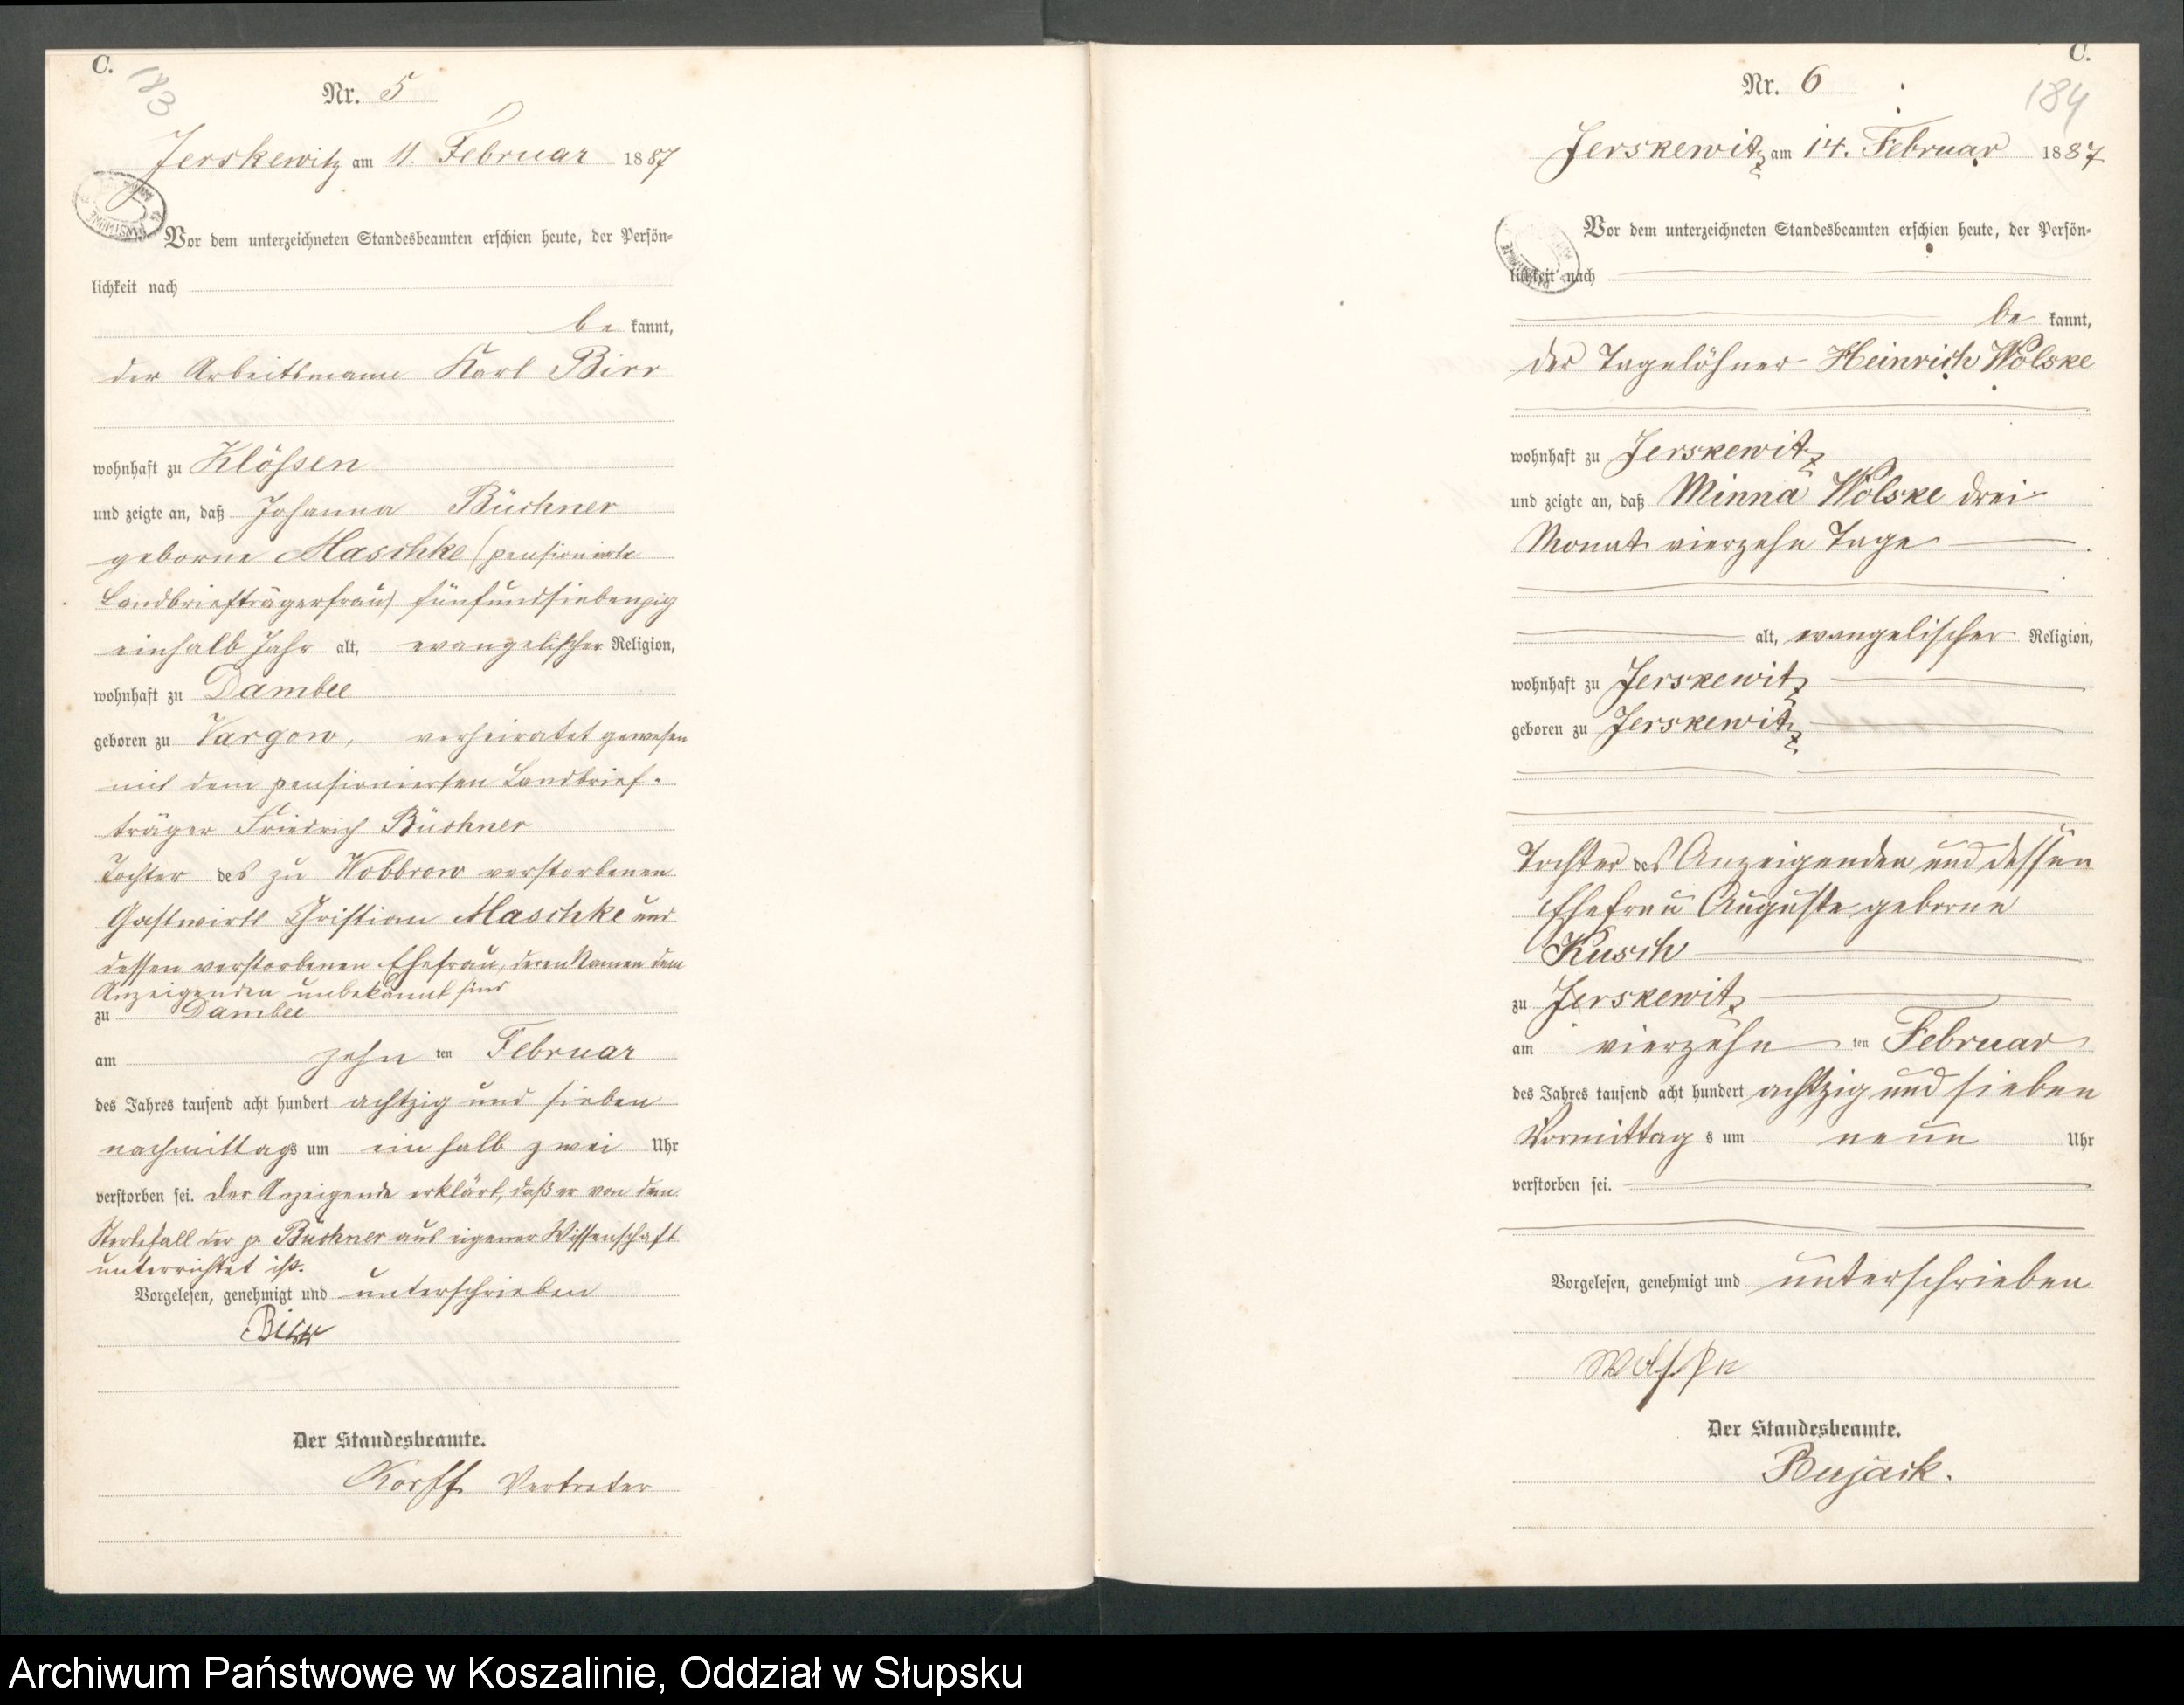 C.
183
Nr. 5
Jerskewitz am 11. Februar 1887
Vor dem unterzeichneten Standesbeamten erschien heute, der Persön-
lichkeit nach
be kannt,
der Arbeitsmann Karl Birr
wohnhaft zu Klößen
und zeigte an, daß Johanna Büchner
geborne Maschke (pensionirte
Landbriefträgerfrau) fünfundsiebenzig
einhalb Jahr alt, evangelischer Religion,
wohnhaft zu Dambee
geboren zu Vargow, verheiratet gewesen
mit dem pensionierten Landbrief-
träger Friedrich Büchner
Tochter des zu Wobbrow verstorbenen
Gastwirts Christian Maschke und
dessen verstorbenen Ehefrau, deren Namen dem
Anzeigenden unbekannt sind
zu Dambee
am zehn ten Februar
des Jahres tausend acht hundert achtzig und sieben
nachmittags um ein halb zwei Uhr
verstorben sei. Der Anzeigende erklärt, daß er von dem
Sterbefall der p. Büchner aus eigener Wissenschaft
unterrichtet ist.
Vorgelesen, genehmigt und unterschrieben
Birr
Der Standesbeamte.
Korff Vertreter
C.
184
Nr. 6
Jerskewitz am 14. Februar 1887
Vor dem unterzeichneten Standesbeamten erschien heute, der Persön-
lichkeit nach
be kannt,
der Tagelöhner Heinrich Wolske
wohnhaft zu Jerskewitz
und zeigte an, daß Minna Wolske drei
Monat vierzehn Tage
alt, evangelischer Religion,
wohnhaft zu Jerskewitz
geboren zu Jerskewitz
Tochter des Anzeigenden und dessen
Ehefrau Auguste geborne
Kusch
zu Jerskewitz
am vierzehn ten Februar
des Jahres tausend acht hundert achtzig und sieben
Vormittag s um neun Uhr
verstorben sei.
Vorgelesen, genehmigt und unterschrieben
Wolske
Der Standesbeamte.
Bujack.
Archiwum Państwowe w Koszalinie, Oddział w Słupsku